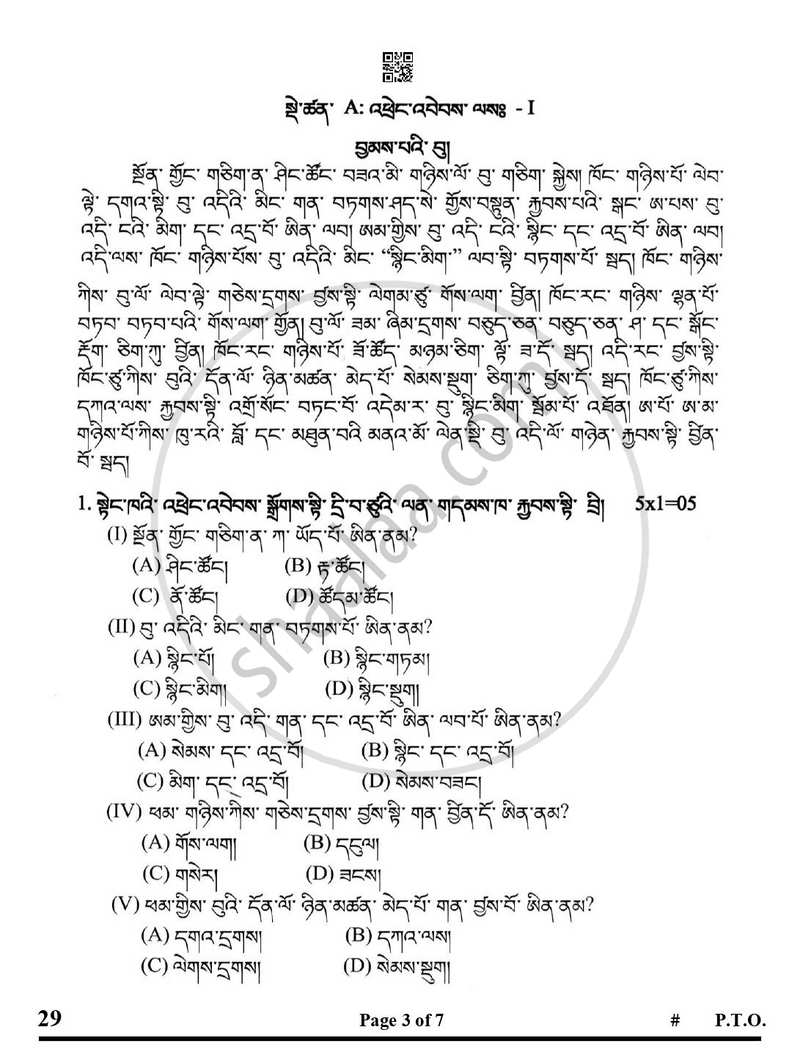 སྡེ་ཚན་ A: འཕྲེང་འབེབས་ ལསཿ - I
བྱམས་པའི་ བུ།
སྔོན་ གྱོང་ གཅིག་ན་ ཤིང་ཚོང་ བཟའ་མི་ གཉིས་ལོ་ བུ་ གཅིག་ སྐྱེས། ཁོང་ གཉིས་པོ་ ལེབ་
ལྟེ་ དགའ་སྟི་ བུ་ འདིའི་ མིང་ གན་ བཏགས་ཤད་སེ་ གྱོས་བསྟུན་ རྐྱབས་པའི་ སྒང་ ཨ་པས་ བུ་
འདི་ ངའི་ མིག་ དང་ འདྲ་བོ་ ཨིན་ ལབ། ཨམ་གྱིས་ བུ་ འདི་ ངའི་ སྙིང་ དང་ འདྲ་བོ་ ཨིན་ ལབ།
འདི་ལས་ ཁོང་ གཉིས་པོས་ བུ་ འདིའི་ མིང་ “སྙིང་མིག་” ལབ་སྟི་ བཏགས་པོ་ སྦད། ཁོང་ གཉིས་
ཀིས་ བུ་ལོ་ ལེབ་ལྟེ་ གཅེས་དྲགས་ བྱས་སྟི་ ལེགམ་ཙུ་ གོས་ལག་ བྱིན། ཁོང་རང་ གཉིས་ ལྷན་པོ་
བཏབ་ བཏབ་པའི་ གོས་ལག་ གྱོན། བུ་ལོ་ ཟམ་ ཞིམ་དྲགས་ བཅུད་ཅན་ བཅུད་ཅན་ ཤ་ དང་ སྒོང་
རྡོག་ ཅིག་ཀུ་ བྱིན། ཁོང་རང་ གཉིས་པོ་ ཟོ་ཚོད་ མཉམ་ཅིག་ ལྟོ་ ཟ་དོ་ སྦད། འདི་རང་ བྱས་སྟི་
ཁོང་ཙུ་ཀིས་ བུའི་ དོན་ལོ་ ཉིན་མཚན་ མེད་པོ་ སེམས་སྡུག་ ཅིག་ཀུ་ བྱས་དོ་ སྦད། ཁོང་ཙུ་ཀིས་
དཀའ་ལས་ རྐྱབས་སྟི་ འགྲོ་སོང་ བཏང་བོ་ འདེམ་ར་ བུ་ སྙིང་མིག་ སྦོམ་པོ་ འཐོན། ཨ་པོ་ ཨ་མ་
གཉིས་པོ་ཀིས་ ཁུ་རའི་ བློ་ དང་ མཐུན་བའི་ མནའ་མོ་ ལེན་སྡི་ བུ་ འདི་ལོ་ གཉེན་ རྐྱབས་སྟི་ བྱིན་
བོ་ སྦད།
1. སྟེང་ཁའི་ འཕྲེང་འབེབས་ སྒྲོགས་སྟི་ དྲི་བ་ཙུའི་ ལན་ གདམས་ཁ་ རྐྱབས་སྟི་ བྲི། 5x1=05
(I) སྔོན་ གྱོང་ གཅིག་ན་ ཀ་ ཡོད་པོ་ ཨིན་ནམ?
(A) ཤིང་ཚོང། (B) རྟ་ཚོང།
(C) ནོ་ཚོང། (D) ཚོདམ་ཚོང།
(II) བུ་ འདིའི་ མིང་ གན་ བཏགས་པོ་ ཨིན་ནམ?
(A) སྙིང་པོ། (B) སྙིང་གཏམ།
(C) སྙིང་མིག། (D) སྙིང་སྡུག།
(III) ཨམ་གྱིས་ བུ་ འདི་ གན་ དང་ འདྲ་བོ་ ཨིན་ ལབ་པོ་ ཨིན་ནམ?
(A) སེམས་ དང་ འདྲ་བོ། (B) སྙིང་ དང་ འདྲ་བོ།
(C) མིག་ དང་ འདྲ་བོ། (D) སེམས་བཟང།
(IV) ཕམ་ གཉིས་ཀིས་ གཅེས་དྲགས་ བྱས་སྟི་ གན་ བྱིན་དོ་ ཨིན་ནམ?
(A) གོས་ལག། (B) དངུལ།
(C) གསེར། (D) ཟངས།
(V) ཕམ་གྱིས་ བུའི་ དོན་ལོ་ ཉིན་མཚན་ མེད་པོ་ གན་ བྱས་བོ་ ཨིན་ནམ?
(A) དགའ་དྲགས། (B) དཀའ་ལས།
(C) ལེགས་དྲགས། (D) སེམས་སྡུག།
shaalaa.com
29 Page 3 of 7 # P.T.O.